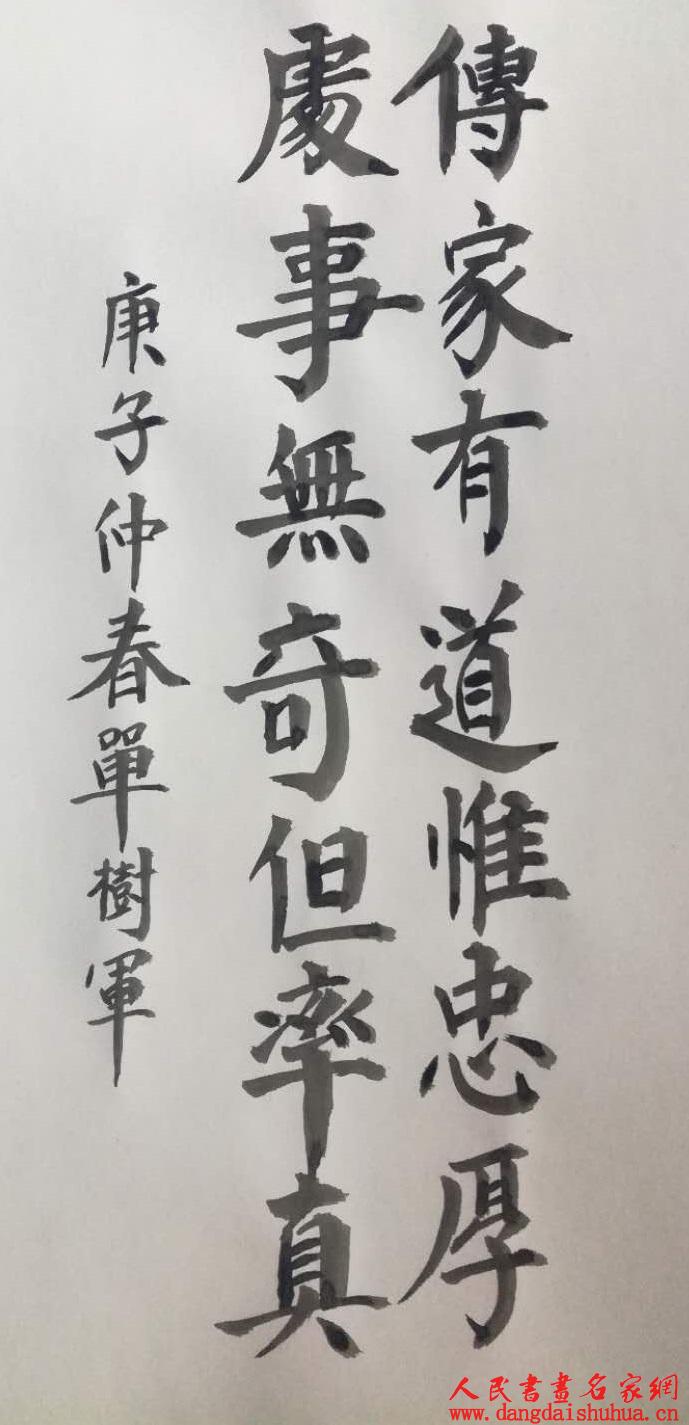 傳家有道惟忠厚
處事無奇但率真
庚子仲春單樹軍
人民書畫名家網
www.dangdaishuhua.cn